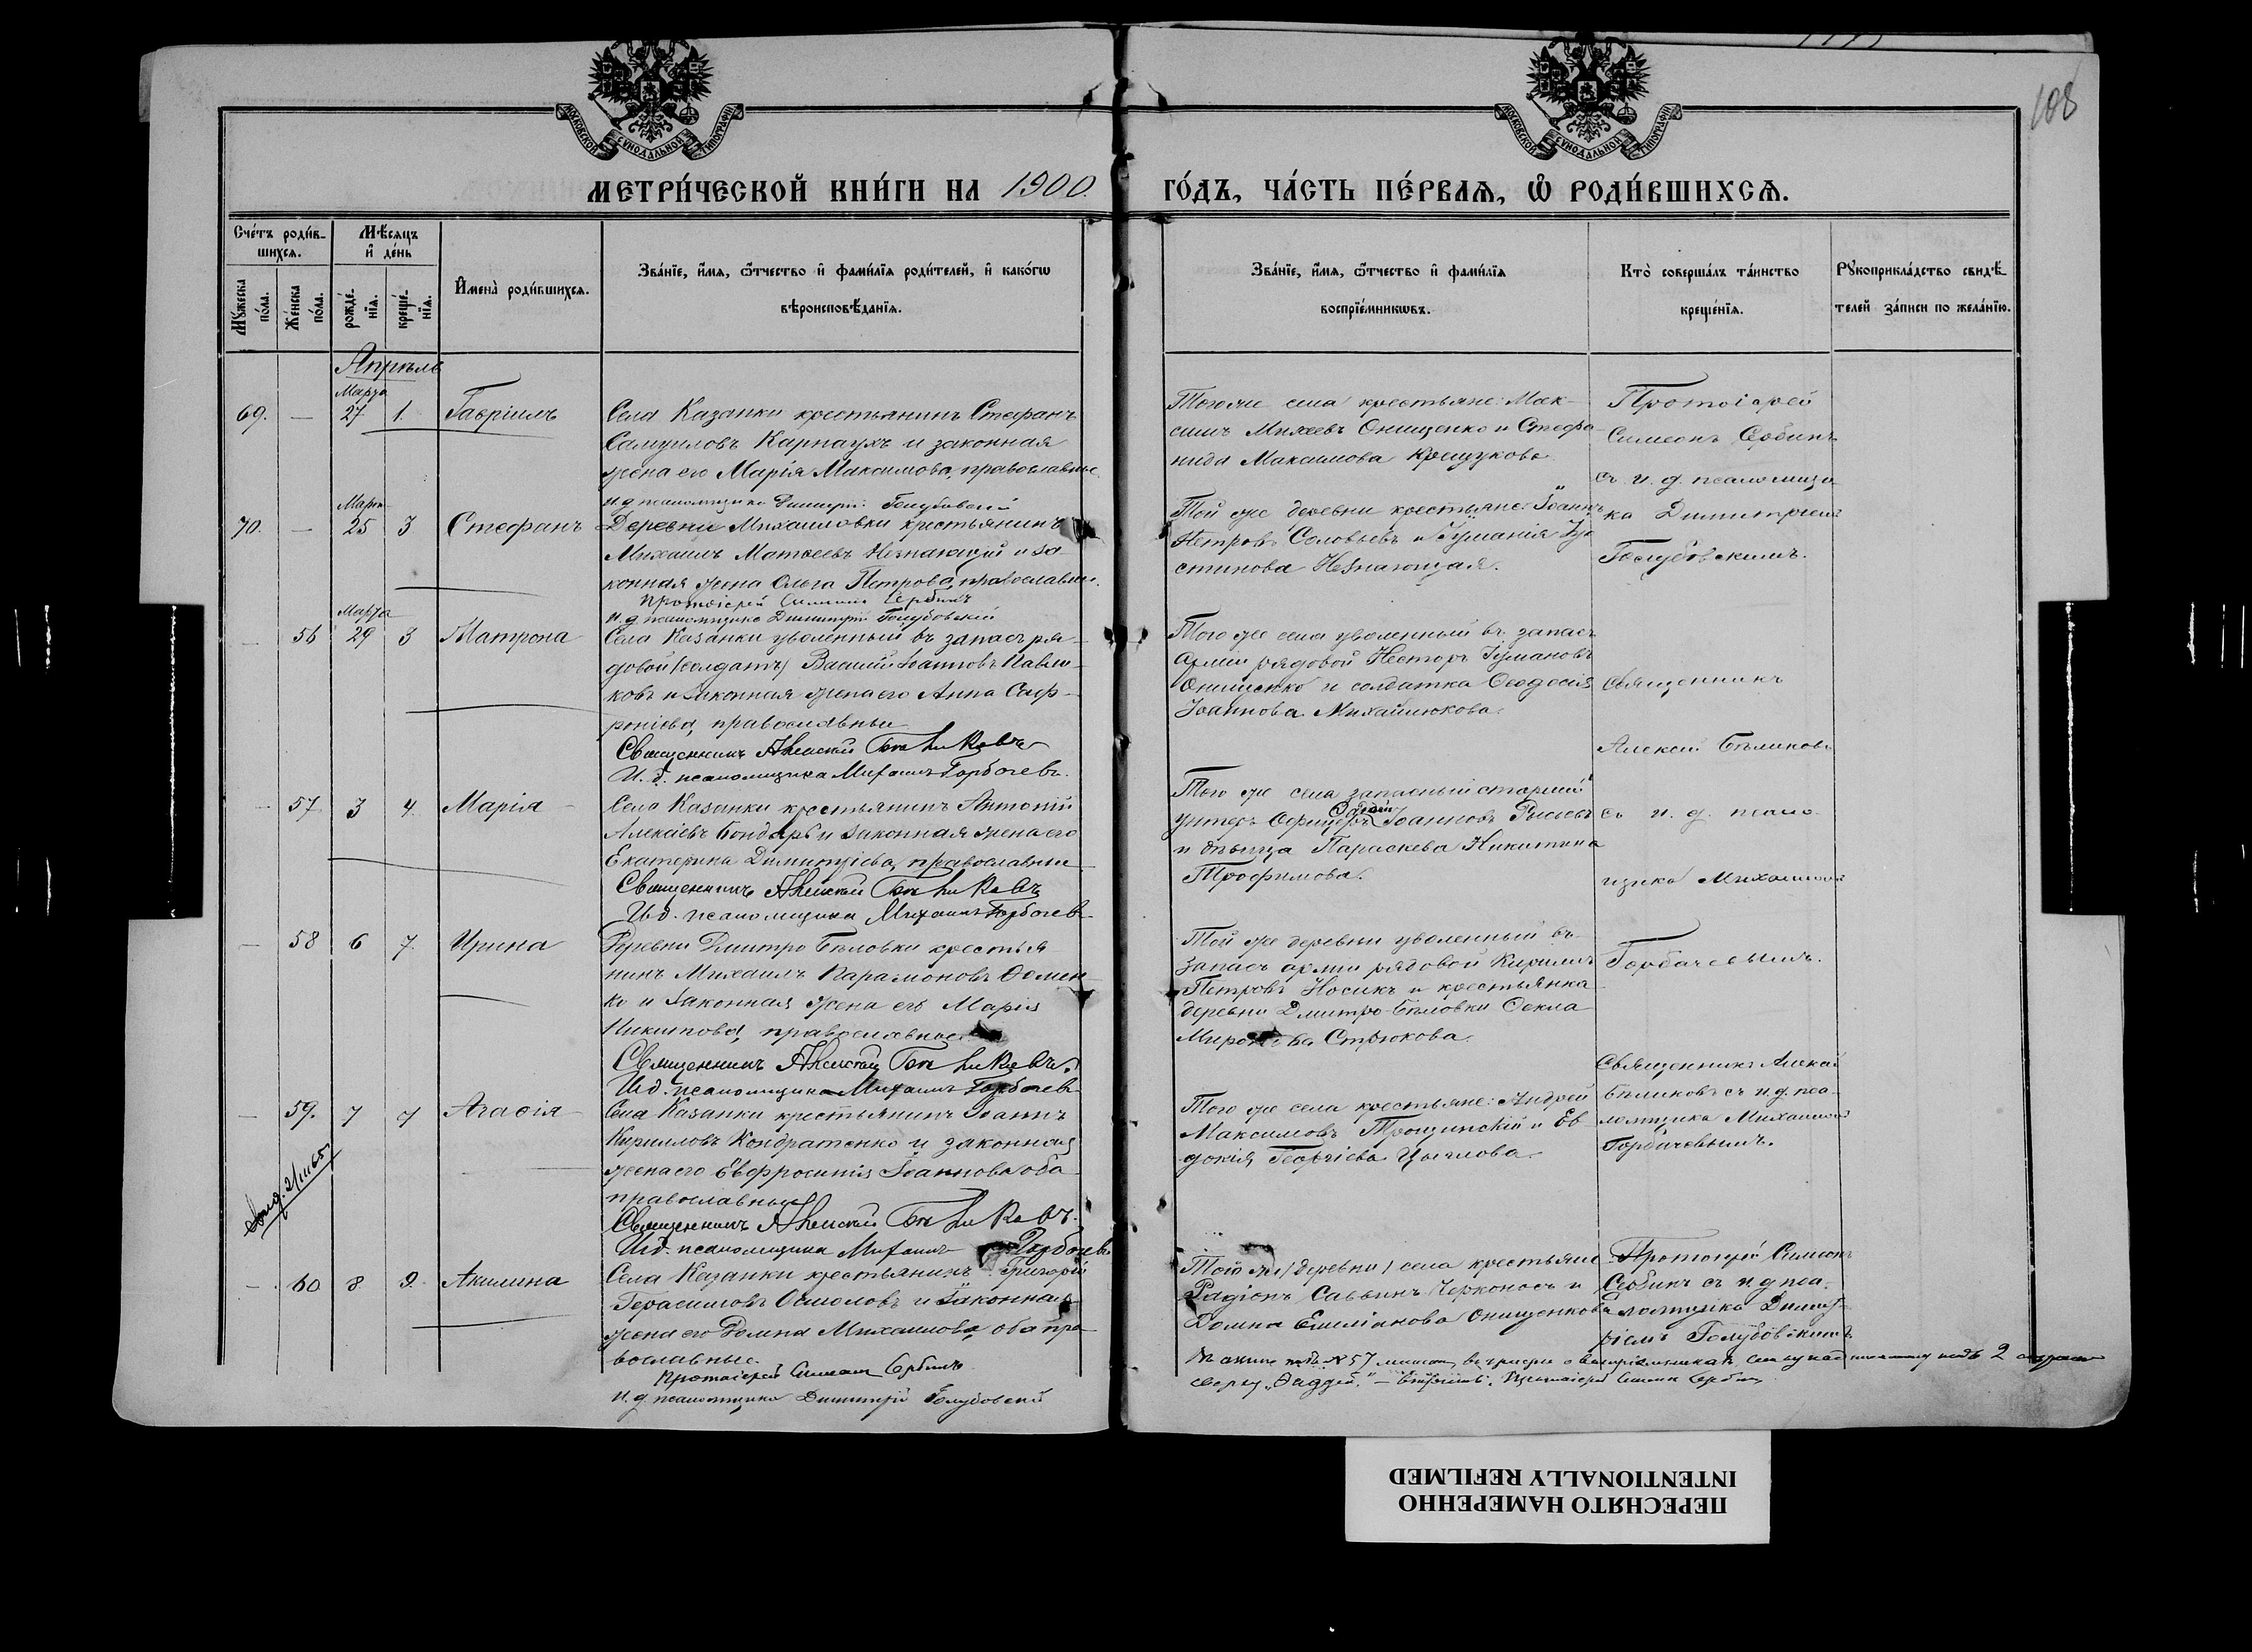 108
МОСКОВСКОЙ СѴНОДАЛЬНОЙ ТИПОГРАФІИ
МОСКОВСКОЙ СѴНОДАЛЬНОЙ ТИПОГРАФІИ
МЕТРИ́ЧЕСКОЙ КНИ́ГИ НА 1900 ГО́ДЪ, ЧА́СТЬ ПЕ́РВАѦ, Ѡ҆ РОДИ́ВШИХСѦ.
Сче́тъ роди́вшихсѧ.
Мѣ́сѧцъ и҆ де́нь
Мꙋ́жеска по́ла.
Же́нска по́ла.
рожде́нїѧ.
креще́нїѧ.
И҆мена̀ роди́вшихсѧ.
Зва́нїе, и҆́мѧ, ѻ҆́тчество и҆ фами́лїѧ роди́телей, и҆ како́гѡ
вѣроисповѣ́данїѧ.
Зва́нїе, и҆́мѧ, ѻ҆́тчество и҆ фами́лїѧ
воспрїе́мникѡвъ.
Кто̀ соверша́лъ та́инство
креще́нїѧ.
Рꙋкоприкла́дство свидѣ́-
телей за́писи по жела́нїю.
Апрѣль
69. — Марта 27 1. Гавріилъ
Села Казанки крестьянинъ Стефанъ
Самуиловъ Карнаухъ и законная
жена его Марія Максимова, православные
и. д. псаломщика Димитрій Голубовскій
Тогоже села крестьяне: Мак-
симъ Михеевъ Онищенко и Стефа-
нида Максимова
Протоіерей
Симеонъ Сербинъ
съ и. д. псаломщи
ка Димитріемъ
Голубовскимъ.
70. — Марта 25 3 Стефанъ
Деревни Михайловки крестьянинъ
Михаилъ Матвеевъ Незнающій и за-
конная жена Ольга Петрова, православные.
Протоіерей Симеонъ Сербинъ
и. д. псаломщика Димитрій Голубовскій
Той же деревни крестьяне: Іоаннъ
Петровъ Соловьевъ и Іуліанія Іу
стинова Незнающая.
— 56 Марта 29 3 Матрона
Села Казанки уволенный въ запасъ ря-
довой (солдатъ) Василій Іоанновъ Павлю-
ковъ и законная жена его Анна Соф-
роніева, православные
Священникъ Алексій Бѣликовъ
И. д. псаломщика Михаилъ Горбачевъ.
Того же села уволенный въ запасъ
арміи рядовой Несторъ
Онищенко и солдатка Ѳеодосія
Іоаннова Михайлюкова.
Священникъ
Алексій Бѣликовъ
съ и. д. псало-
мщика Михаиломъ
Горбачевымъ.
— 57 3 4. Марія
Села Казанки крестьянинъ Антоній
Алексіевъ Бондарь и законная жена его
Екатерина Димитріева, православные
Священникъ Алексій Бѣликовъ
И. д. псаломщика Михаилъ Горбачевъ
Того же села запасный старшій
унтеръ офицеръ Іоанновъ
и дѣвица Параскева Никитина
Трофимова.
— 58 6 7. Ирина
Деревни Дмитро Бѣловки крестья
нинъ Михаилъ Парамоновъ
ко и законная жена его Марія
православные
Священникъ Алексій Бѣликовъ.
И. д. псаломщика Михаилъ Горбачевъ
Той же деревни уволенный въ
запасъ арміи рядовой Кириллъ
Петровъ Носикъ и крестьянка
деревни Дмитро-Бѣловки Ѳекла
Миронова Стрюкова.
— 59. 7 7 Агаѳія
Села Казанки крестьянинъ Іоаннъ
Кирилловъ Кондратенко и законная
жена его Евфросинія Іоаннова оба
православные
Священникъ Алексій Бѣликовъ.
И. д. псаломщика Михаилъ Горбачевъ
Того же села крестьяне: Андрей
Максимовъ Трощинскій и Ев
докія Георгіева
Священникъ Алексій
Бѣликовъ съ и. д. пса-
ломщика Михаиломъ
Горбачевымъ.
— 60 8 9. Акилина
Села Казанки крестьянинъ Григорій
Герасимовъ и законная
жена его Домна Михаилова, оба пра-
вославные.
Протоіерей Симеонъ Сербинъ
и. д. псаломщика Димитрій Голубовскій
Той же (деревни) села крестьяне
Радіонъ Саввинъ Черконосъ и
Домна Емиліанова Онищенкова
Протоіерей Симеонъ
Сербинъ съ и. д. пса-
ломщика Димит-
ріемъ Голубовскимъ
сверху „Ѳаддей" — Протоіерей Симеонъ Сербинъ
ПЕРЕСНЯТО НАМЕРЕННО
INTENTIONALLY REFILMED